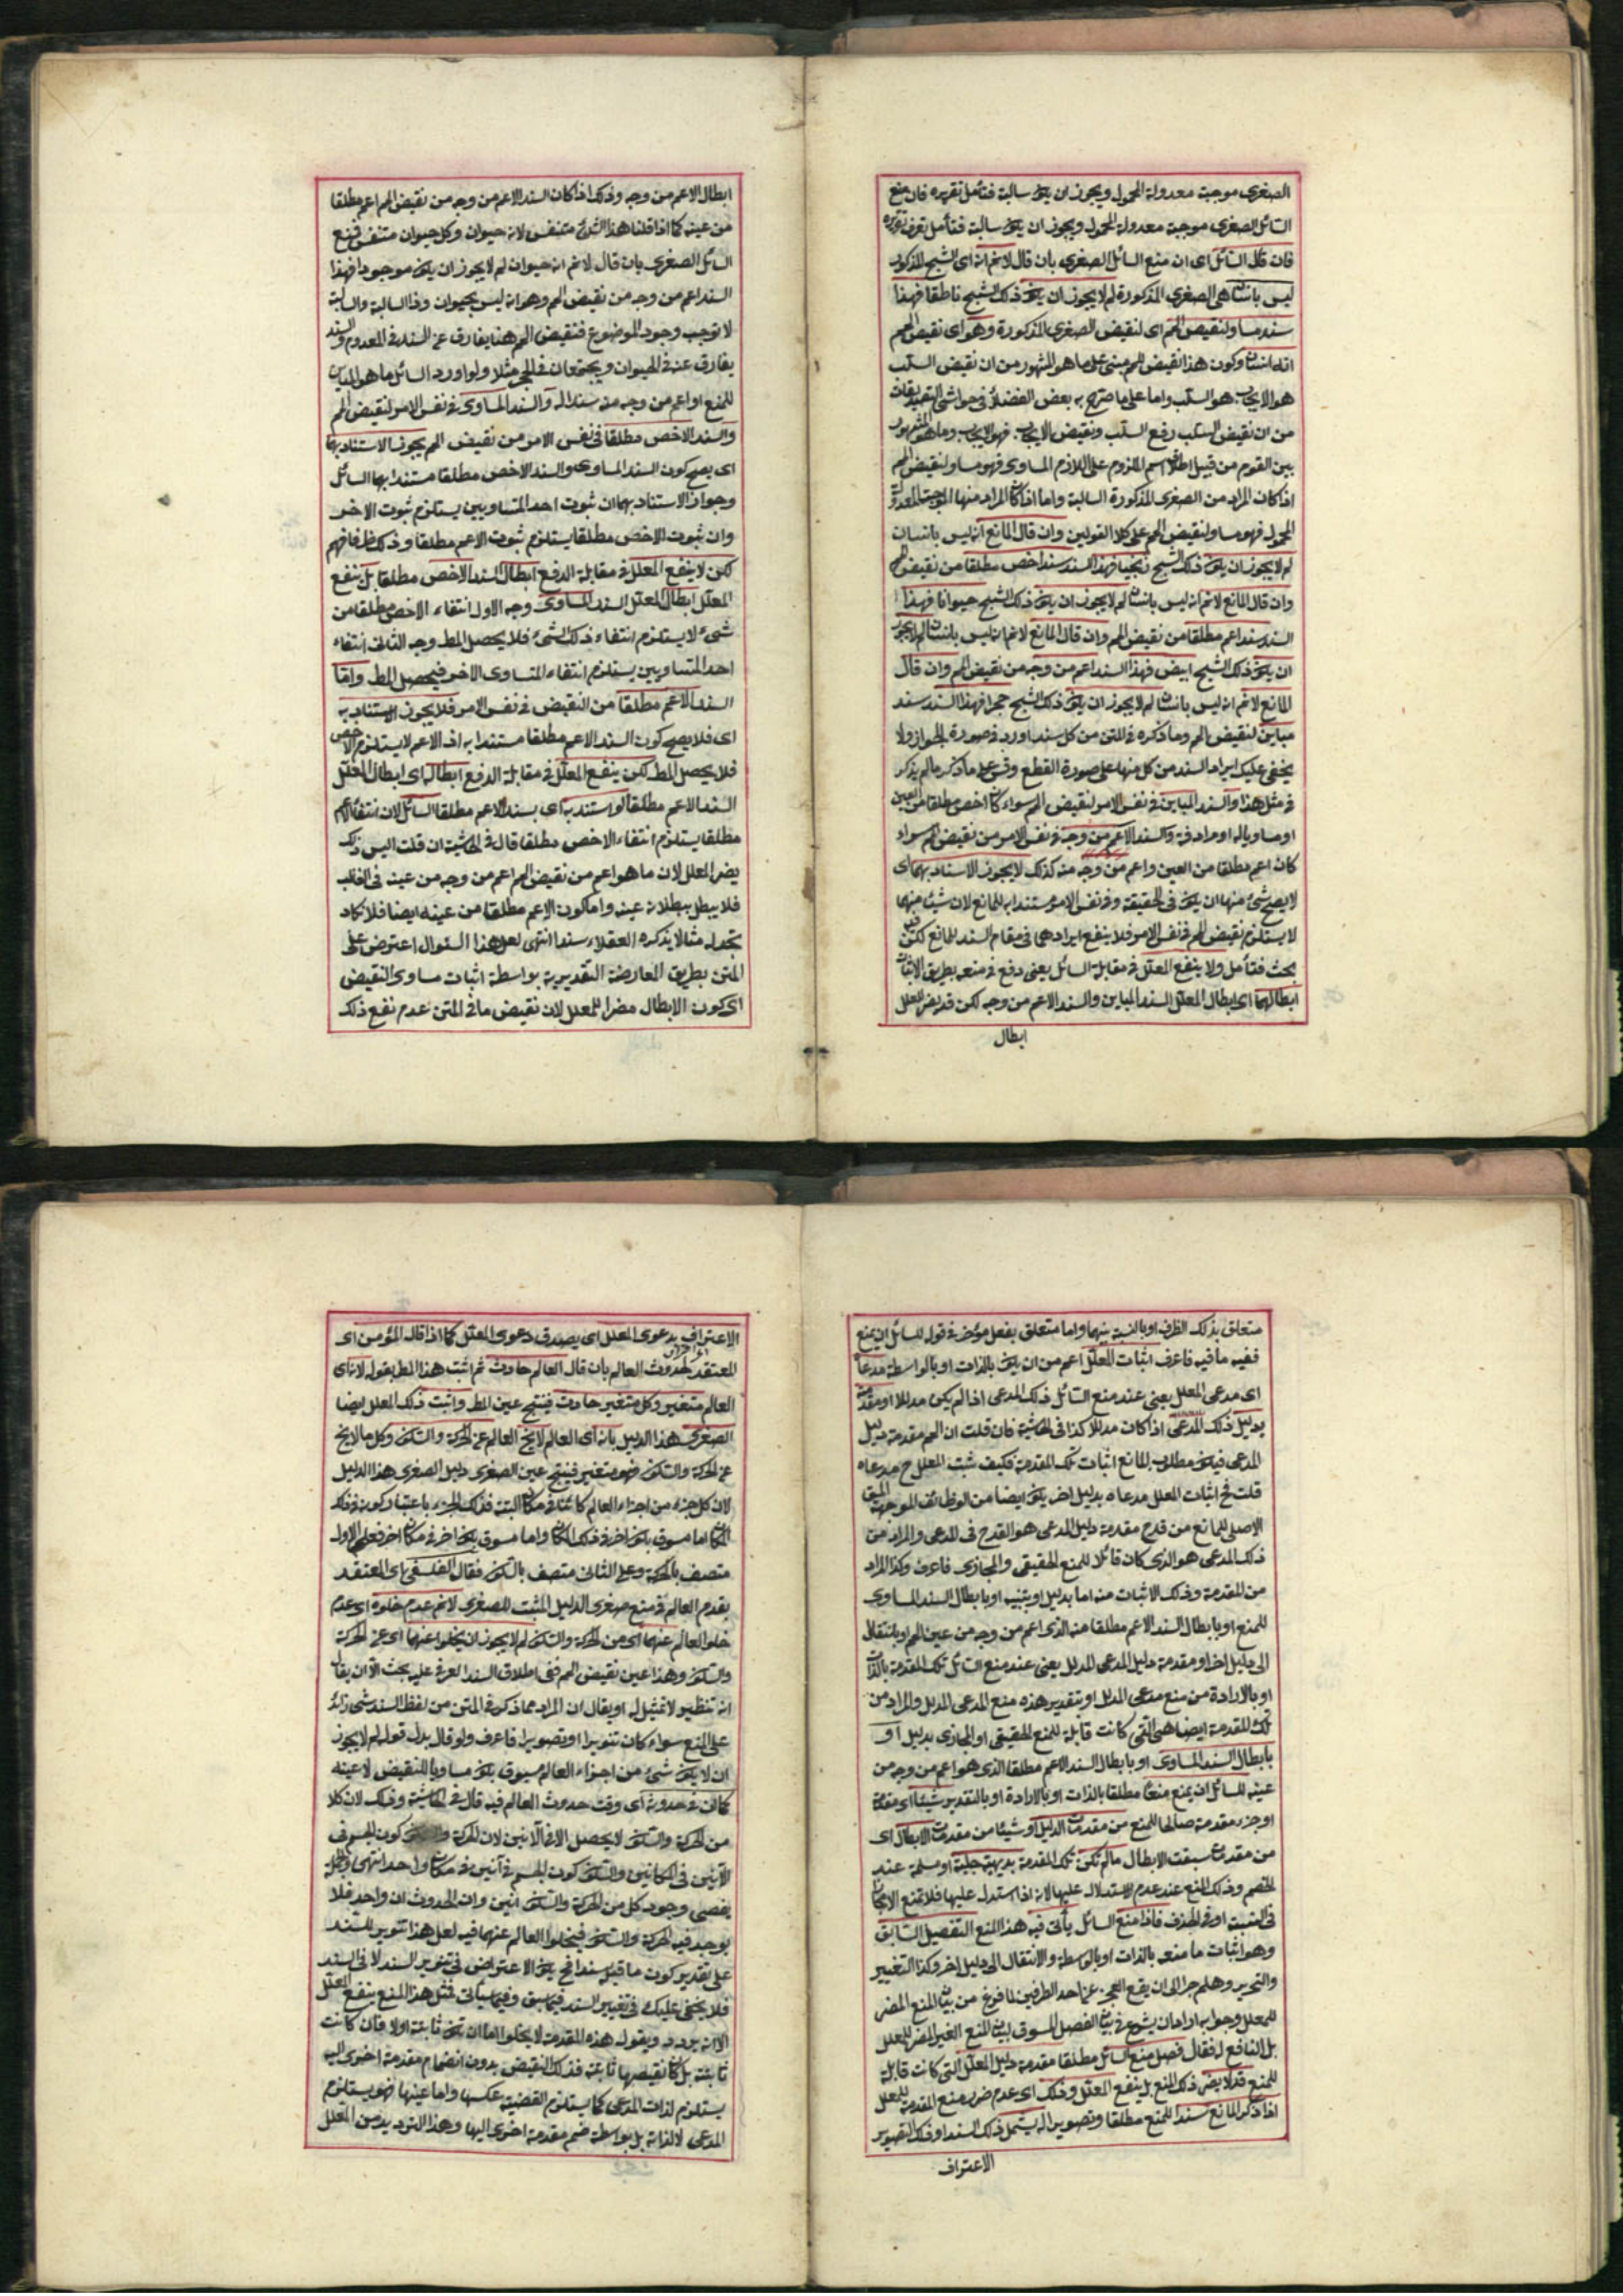 الصغرى موجبة معدولة المحمول ويجوز ان يكون سالبة فتأمل تقريره فان منع
السائل الصغرى موجبة معدولة المحمول ويجوز ان يكون سالبة فتأمل
فان قال السائل اى ان منع السائل الصغرى بان قال لانم انه اى الشبح المذكور
ليس بانسان هى الصغرى المذكورة لم لا يجوز ان يكون ذلك الشبح ناطقا فهذا
سند مساو لنقيض المم اى لنقيض الصغرى المذكورة وهو اى نقيض المم
انه انسان وكون هذا نقيض المم مبنى على ما هو المشهور من ان نقيض السلب
هو الايجاب هو السلب واما على ما صرح به بعض الفضلاء فى حواشى التصديقات
من ان نقيض السلب رفع السلب ونقيض الايجاب فهو الايجاب وما هو المشهور
بين القوم من قبيل اطلاق اسم الملزوم على اللازم المساوى فهو مساو لنقيض المم
اذا كان المراد من الصغرى المذكورة السالبة واما اذا كان المراد منها الموجبة المعدولة
المحمول فهو مساو لنقيض المم على كلا القولين وان قال المانع انه ليس بانسان
لم لا يجوز ان يكون ذلك الشبح زنجيا فهذا السند سند اخص مطلقا من نقيض المم
وان قال المانع لانم انه ليس بانسان لم لا يجوز ان يكون ذلك الشبح حيوانا فهذا
السند سند اعم مطلقا من نقيض المم وان قال المانع لانم انه ليس بانسان لم لا يجوز
ان يكون ذلك الشبح ابيض فهذا السند اعم من وجه من نقيض المم وان قال
المانع لانم انه ليس بانسان لم لا يجوز ان يكون ذلك الشبح حجرا فهذا السند سند
مباين لنقيض المم وما ذكره فى المتن من كل سند اورد فى صورة الجواز ولا
يخفى عليك ايراد السند من كل منها على صورة القطع وقس على ما ذكر ما لم يذكر
فى مثل هذا والسند المباين فى نفس الامر لنقيض المم سواء كان اخص مطلقا من العين
او مساويا له او مرادفه والسند الاعم من وجه فى نفس الامر من نقيض المم سواء
كان اعم مطلقا من العين واعم من وجه منه كذلك لا يجوز الاستناد بهما اى
لا يصح شئ منها ان يكون فى الحقيقة وفى نفس الامر مستندا به للمانع لان شيئا منهما
لا يستلزم نقيض المم فى نفس الامر فلا ينفع ايرادهما فى مقام السند للمانع لكن فيه
بحث فتأمل ولا ينفع المعلل فى مقابلة السائل يعنى دفع فى منعه بطريق الاثبات
ابطالهما اى ابطال المعلل السند المباين والسند الاعم من وجه لكن قد يضر المعلل
ابطال
ابطال الاعم من وجه وذلك اذا كان السند الاعم من وجه من نقيض المم اعم مطلقا
من عينه كما اذا قلنا هذا الشئ متنفس لانه حيوان وكل حيوان متنفس فمنع
السائل الصغرى بان قال لانم انه حيوان لم لا يجوز ان يكون موجودا فهذا
السند اعم من وجه من نقيض المم وهو انه ليس بحيوان وذا السالبة والسالبة
لا توجب وجود الموضوع فنقيض المم هنا يفارق عن السند فى المعدوم والسند
يفارق عنه فى الحيوان ويجتمعان فى الحجر مثلا ولو اورد السائل ما هو المباين
للمنع او اعم من وجه منه سندا له والسند المساوى فى نفس الامر لنقيض المم
والسند الاخص مطلقا فى نفس الامر من نقيض المم يجوز الاستناد بهما
اى يصح كون السند المساوى والسند الاخص مطلقا مستندا بهما السائل
وجواز الاستناد بهما ان ثبوت احد المتساويين يستلزم ثبوت الاخر
وان ثبوت الاخص مطلقا يستلزم ثبوت الاعم مطلقا وذلك ظ فافهم
لكن لا ينفع المعلل فى مقابلة الدفع ابطال السند الاخص مطلقا بل ينفع
المعلل ابطال المعلل السند المساوى وجه الاول انتفاء الاخص مطلقا من
شئ لا يستلزم انتفاء ذلك الشئ فلا يحصل المط وجه الثانى انتفاء
احد المتساويين يستلزم انتفاء المتساوى الاخر فيحصل المط واما
السند الاعم مطلقا من النقيض فى نفس الامر فلا يجوز الاستناد به
اى فلا يصح كون السند الاعم مطلقا مستندا به اذ الاعم لا يستلزم الاخص
فلا يحصل المط لكن ينفع المعلل فى مقابلة الدفع ابطاله اى ابطال المعلل
السند الاعم مطلقا لو استند به اى بسند الاعم مطلقا السائل لان انتفاء الاعم
مطلقا يستلزم انتفاء الاخص مطلقا قال فى الحاشية ان قلت اليس ذلك
يضر المعلل لان ما هو اعم من نقيض المم اعم من وجه من عينه فى الغالب
فلا يبطل ببطلانه عينه واما كون الاعم مطلقا من عينه ايضا فلا تكاد
تجد له مثالا يذكره العقلاء سندا انتهى لعل هذا السئوال اعترض على
المتن بطريق المعارضة التقديرية بواسطة اثبات مساوى النقيض
اى كون الابطال مضرا للمعلل لان نقيض ما فى المتن عدم نفع ذلك
متعلق بذلك الظرف او بالنسبة بينهما واما متعلق بفعل مؤخر فى قوله للسائل ان يمنع
ففيه ما فيه فاعرف اثبات المعلل اعم من ان يكون بالذات او بالواسطة مدعاه
اى مدعى المعلل يعنى عند منع السائل ذلك المدعى اذا لم يكن مدللا او مقدمة
بدليل ذلك المدعى اذا كان مدللا كذا فى الحاشية فان قلت ان المم مقدمة دليل
المدعى فيكون مطلوب المانع اثبات تلك المقدمة فكيف يثبت المعلل ح مدعاه
قلت فح اثبات المعلل مدعاه بدليل اخر يكون ايضا من الوظائف الموجهة
الاصلى للمانع من قدح مقدمة دليل المدعى هو القدح فى المدعى والمراد من
ذلك المدعى هو الذى كان قابلا للمنع الحقيقى والمجازى فاعرف وكذا المراد
من المقدمة وذلك الاثبات منه اما بدليل او بتنبيه او بابطال السند المساوى
للمنع او بابطال السند الاعم مطلقا منه الذى اعم من وجه من عين المم او بانتقال
الى دليل اخر او مقدمة دليل المدعى المدلل يعنى عند منع السائل تلك المقدمة بالذات
او بالارادة من منع مدعى المدلل او بتقدير هذه منع المدعى المدلل والمراد من
تلك المقدمة ايضا هى التى كانت قابلة للمنع الحقيقى او المجازى بدليل او
بابطال السند المساوى او بابطال السند الاعم مطلقا الذى هو اعم من وجه من
عينه للسائل ان يمنع منعا مطلقا بالذات او بالارادة او بالتقدير شيئا اى مقدمة
او جزء مقدمة صالحا للمنع من مقدمات الدليل او شيئا من مقدمات الابطال اى
من مقدمات سبقت الابطال ما لم تكن تلك المقدمة بديهية جلية او مسلمة عند
الخصم وذلك المنع عند عدم الاستدلال عليها لانه اذا استدل عليها فلا تمنع الا مجازا
فى النسبة او فى الحذف فاذا منع السائل يأتى فيه هذا المنع التفصيل السابق
وهو اثبات ما منعه بالذات او بالواسطة والانتقال الى دليل اخر وكذا التغيير
والتحرير وهلم جرا الى ان يقع العجز عن احد الطرفين لما فرغ من بيان المنع المضر
للمعلل وجوابه اراد ان يشرع فى بيان الفصل المسوق لبيان المنع الغير المضر للمعلل
بل النافع له فقال فصل منع السائل مطلقا مقدمة دليل المعلل التى كانت قابلة
للمنع قد لا يضر ذلك المنع بل ينفع المعلل وذلك اى عدم ضرر منع المقدمة للمعلل
اذا ذكر المانع سندا للمنع مطلقا وتصويرا له يشتمل ذلك السند او ذلك التصوير
الاعتراف
الاعتراف بدعوى المعلل اى بصدق دعوى المعلل كما اذا قال المؤمن اى
المعتقد لحدوث العالم بان قال العالم حادث ثم اثبت هذا المط بقوله لانه اى
العالم متغير وكل متغير حادث فينتج عين المط واثبت ذلك المعلل ايضا
الصغرى هذا الدليل بانه اى العالم لا يخ العالم عن الحركة والسكون وكل ما لا يخ
عن الحركة والسكون فهو متغير فينتج عين الصغرى دليل الصغرى هذا الدليل
لان كل جزء من اجزاء العالم كائنا فى مكان البتة فذلك الجزء باعتبار كونه فى ذلك
المكان اما مسبوق بكون اخر فى ذلك المكان واما مسبوق بكون اخر فى مكان اخر فعلى الاول
متصف بالحركة وعلى الثانى متصف بالسكون فقال الفلسفى اى المعتقد
بقدم العالم فى منع صغرى الدليل المثبت للصغرى لانم عدم خلوه اى عدم
خلو العالم عنهما اى من الحركة والسكون لم لا يجوز ان يخلو عنهما اى عن الحركة
والسكون وهذا عين نقيض المم ففى اطلاق السند العرفى عليه بحث الا ان يقال
انه تنظير لا تمثيل له او يقال ان المراد مما ذكر فى المتن من لفظ السند شئ زائد
على المنع سواء كان تنويرا او تصويرا فاعرف ولو قال بدل قوله لم لا يجوز
ان لا يكون شئ من اجزاء العالم مسبوق بكون مساويا للنقيض لا عينه
كما ان فى حدوثه اى وقت حدوث العالم فيه قال فى الحاشية وذلك لان كلا
من الحركة والسكون لا يحصل الا فى الآنين لان الحركة كون الجسم فى
الآنين فى المكانين والسكون كون الجسم فى آنين فى مكان واحد انتهى
يقضى وجود كل من الحركة والسكون آنين وان الحدوث آن واحد فلا
يوجد فيه الحركة والسكون فيخلو العالم عنهما فيه لعل هذا تنوير للسند
على تقدير كون ما قبله سندا فح يكون الاعتراض فى تنوير السند لا فى السند
فلا يخفى عليك فى تغيير السند فيما سبق وفيما سيأتى فمثل هذا المنع ينفع المعلل
لانه يردد ويقول هذه المقدمة لا يخلو اما ان تكون ثابتة اولا فان كانت
ثابتة بل كان نقيضها ثابتة فذلك النقيض بدون انضمام مقدمة اخرى اليه
يستلزم لذات المدعى كما يستلزم القضية عكسها واما عينها فهو يستلزم
المدعى لا لذاته بل بواسطة ضم مقدمة اخرى اليها وهذا الترديد من المعلل